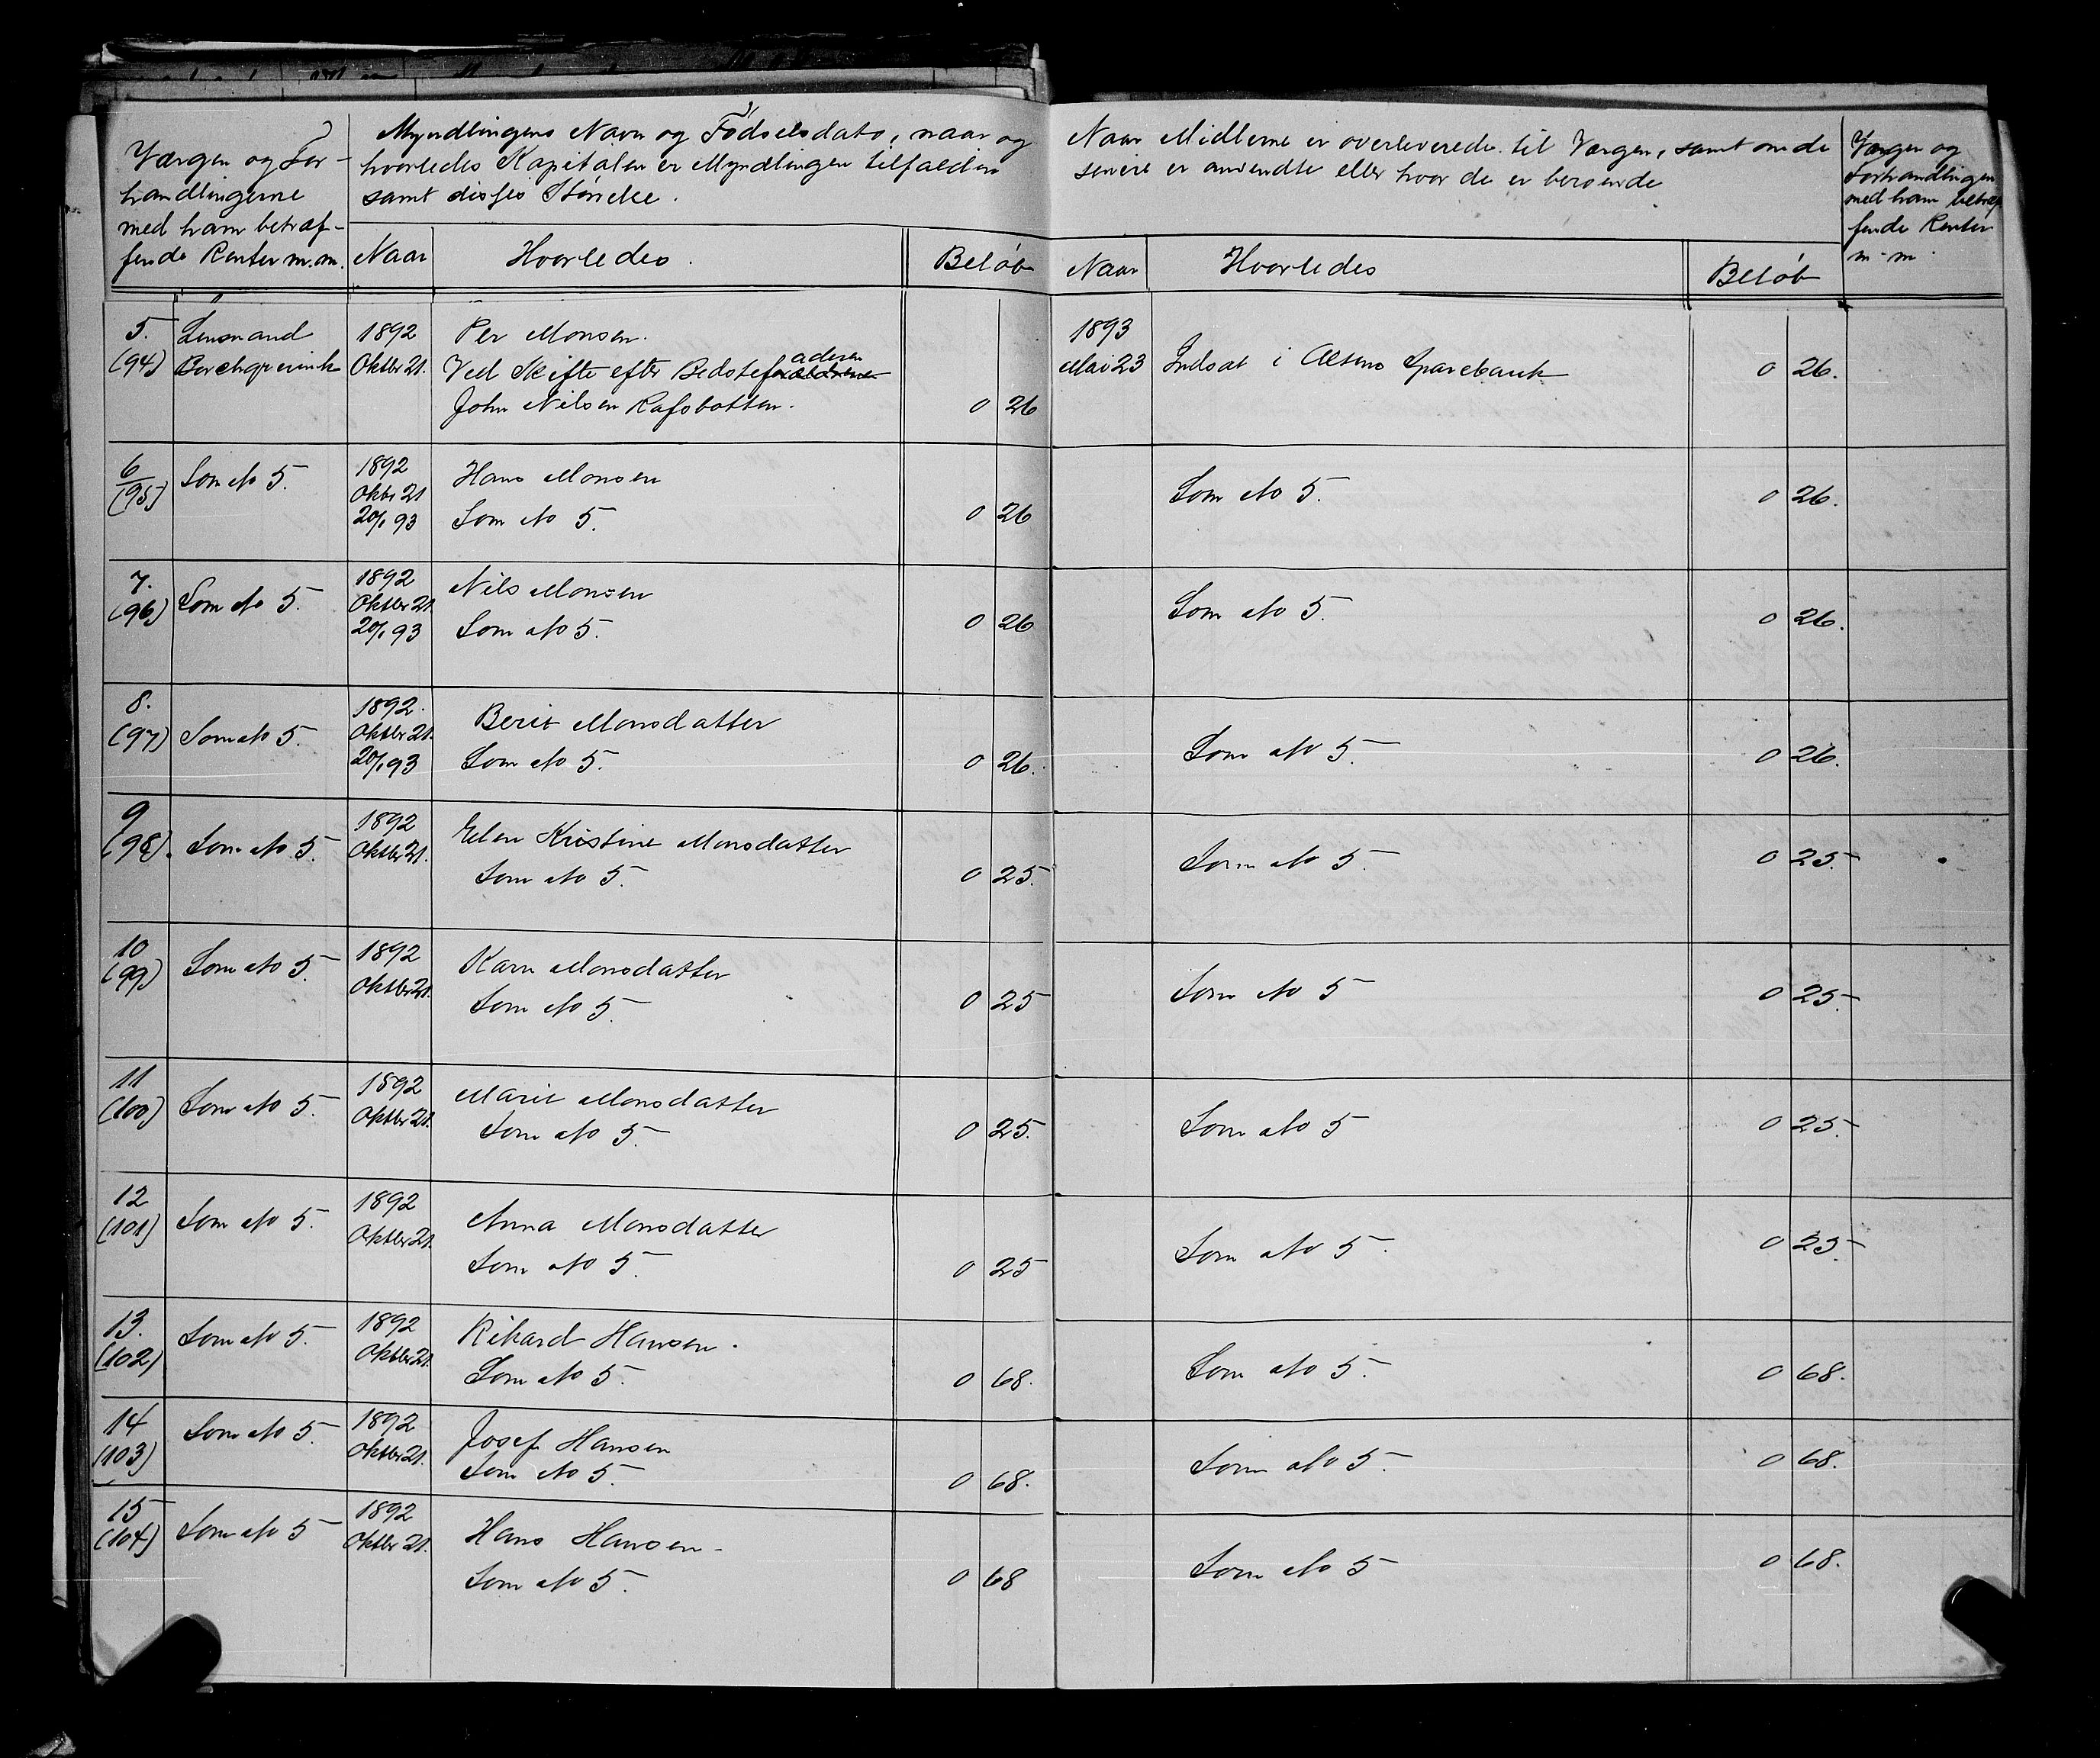 Værgen og For-
handlingerne
med ham betræf-
fende Renter m.m.
Myndlingens Navn og Fødselsdato, naar og
hvorledes Kapitalen er Myndlingen tilfalden
samt disses Størrelse.
Naar
Hvorledes.
Beløb
Naar Midlerne er overleverede til Værgen, samt om de
senere er anvendte eller hvor de er beroende
Naar
Hvorledes
Beløb
Værgen og
Forhandlingen
med ham betræf
fende Renter
m.m.
5. Lensmand 1892 Per Monsen. 1893
(94) Oktbr 21. Ved Skifte efter Bedstefaderen Mai 23 Indsat i Altens Sparebank 0 26.
John Nilsen Rafsbotten. 0 26
6 Som No 5. 1892 Hans Monsen
(95) Oktbr 21 Som No 5. 0 26.
20/1 93 Som No 5. 0 26
7. 1892 Nils Monsen
(96) Som No 5. Oktbr 21. Som No 5. 0 26.
20/1 93 Som No 5. 0 26
8. 1892. Berit Monsdatter
(97) Som No 5. Oktbr 21. Som No 5. 0 26.
20/1 93 Som No 5. 0 26.
9 1892 Elen Kristine Monsdatter
(98). Som No 5. Oktbr 21. Som No 5. 0 25.
Som No 5. 0 25.
10 Som No 5. 1892 Karn Monsdatter
(99) Oktbr 21. Som No 5. 0 25 Som No 5 0 25.
11 1892 Marit Monsdatter
(100) Som No 5. Oktbr 21. Som No 5. 0 25. Som No 5 0 25.
12 1892 Anna Monsdatter
(101) Som No 5. Oktbr 21. Som No 5. 0 25 Som No 5. 0 25.
13. Som No 5. 1892 Rikard Hansen.
(102) Oktbr 21. Som No 5. 0 68. Som No 5. 0 68.
14 Som No 5. 1892 Josef Hansen
(103) Oktbr 21. Som No 5. 0 68. Som No 5. 0 68.
15 Som No 5 1892 Hans Hansen
(104) Oktbr 21. Som No 5. 0 68 Som No 5 0 68.